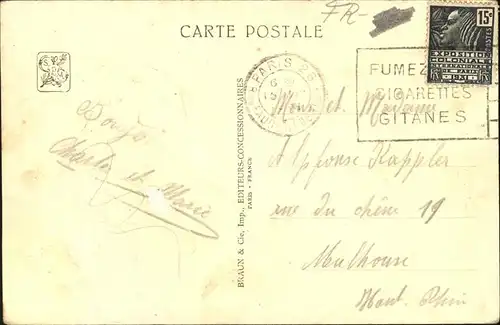 FR-
CARTE POSTALE
15c
POSTES
EXPOSITION
COLONIALE
INTERNATIONALE
PARIS 1931
PARIS 26
FUMEZ
CIGARETTES
GITANES
Mons et Madame
Alphonse Kappler
rue du chêne 19
Mulhouse
Haut Rhin
Charles et Marie
BRAUN & Cie, Imp., EDITEURS-CONCESSIONNAIRES
PARIS - FRANCE